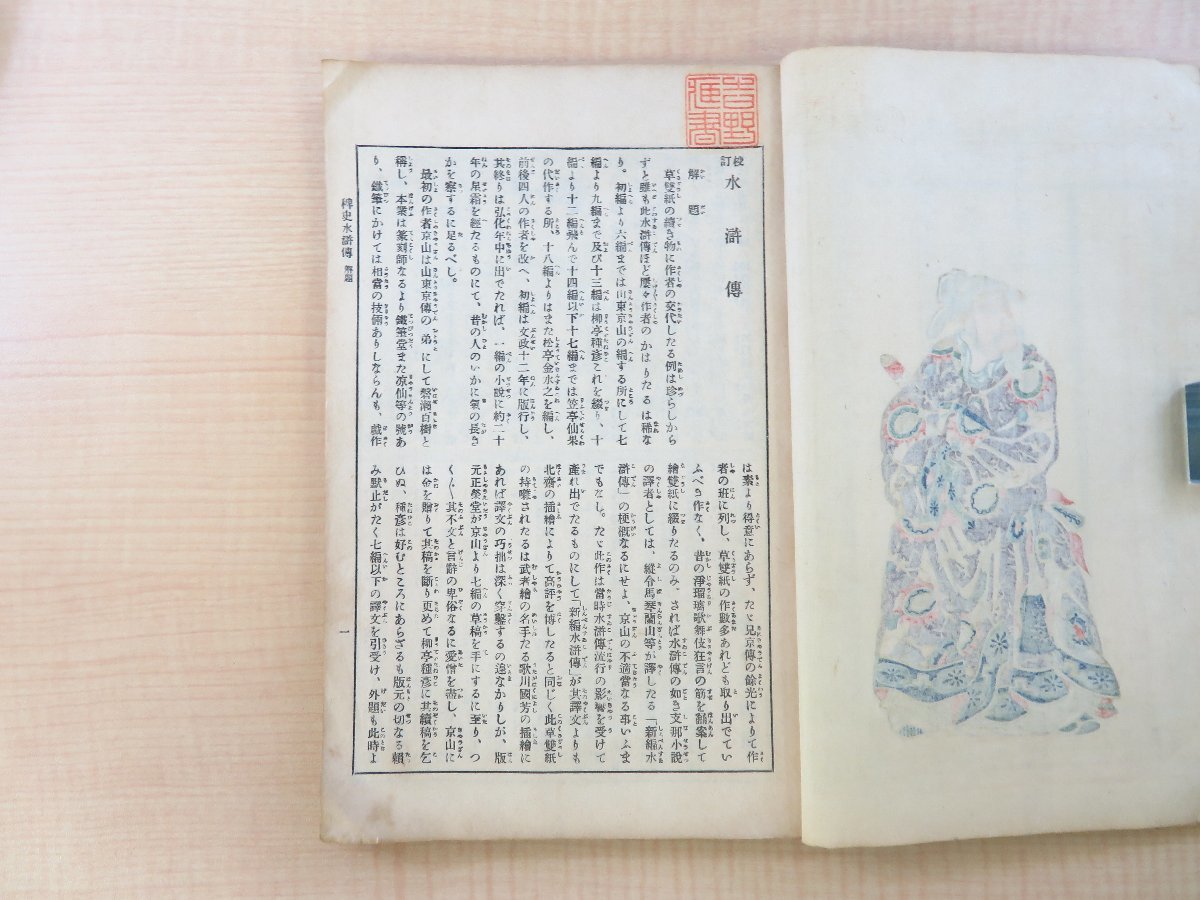 校訂 水滸傳
解題
草雙紙の續き物に作者の交代したる例は珍らしから
ずと雖も此水滸傳ほど屢々作者のかはりたるは稀な
り。初編より六編までは山東京山の綴る所にして七
編より九編まで及び十三編は柳亭種彦これを綴り、十
編より十二編飛んで十四編以下十七編までは笠亭仙果
の代作する所、十八編よりはまた松亭金水之を編し、
前後四人の作者を改へ、初編は文政十二年に版行し、
其終りは弘化年中に出でたれば、一編の小說に約二十
年の星霜を經たるものにて、昔の人のいかに氣の長き
かを察するに足るべし。
最初の作者京山は山東京傳の弟にして磐瀨百樹と
稱し、本業は篆刻師なるより鐵筆堂また凉仙等の號あ
り、鐵筆にかけては相當の技倆ありしならんも、戯作
は素より得意にあらず、たゞ兄京傳の餘光によりて作
者の班に列し、草雙紙の作數多あれども取り出でてい
ふべき作なく、昔の淨瑠璃歌舞伎狂言の筋を飜案して
繪雙紙に綴りたるのみ、されば水滸傳の如き支那小說
の譯者としては、縱令馬琴蘭山等が譯したる「新編水
滸傳」の梗槪なるにせよ、京山の不適當なる事いふま
でもなし。たゞ此作は當時水滸傳流行の影響を受けて
產れ出でたるものにして「新編水滸傳」が其譯文よりも
北齋の插繪によりて高評を博したると同じく此草雙紙
の持囃されたるは武者繪の名手たる歌川國芳の插繪に
あれば譯文の巧拙は深く穿鑿するの遑なかりしが、版
元正榮堂が京山より七編の草稿を手にするに至り、つ
く〴〵其不文と言辭の卑俗なるに愛憎を盡し、京山に
は金を贈りて其稿を斷り更めて柳亭種彦に其續稿を乞
ひぬ、種彦は好むところにあらざるも版元の切なる賴
み默止がたく七編以下の譯文を引受け、外題も此時よ
稗史水滸傳 解題
一